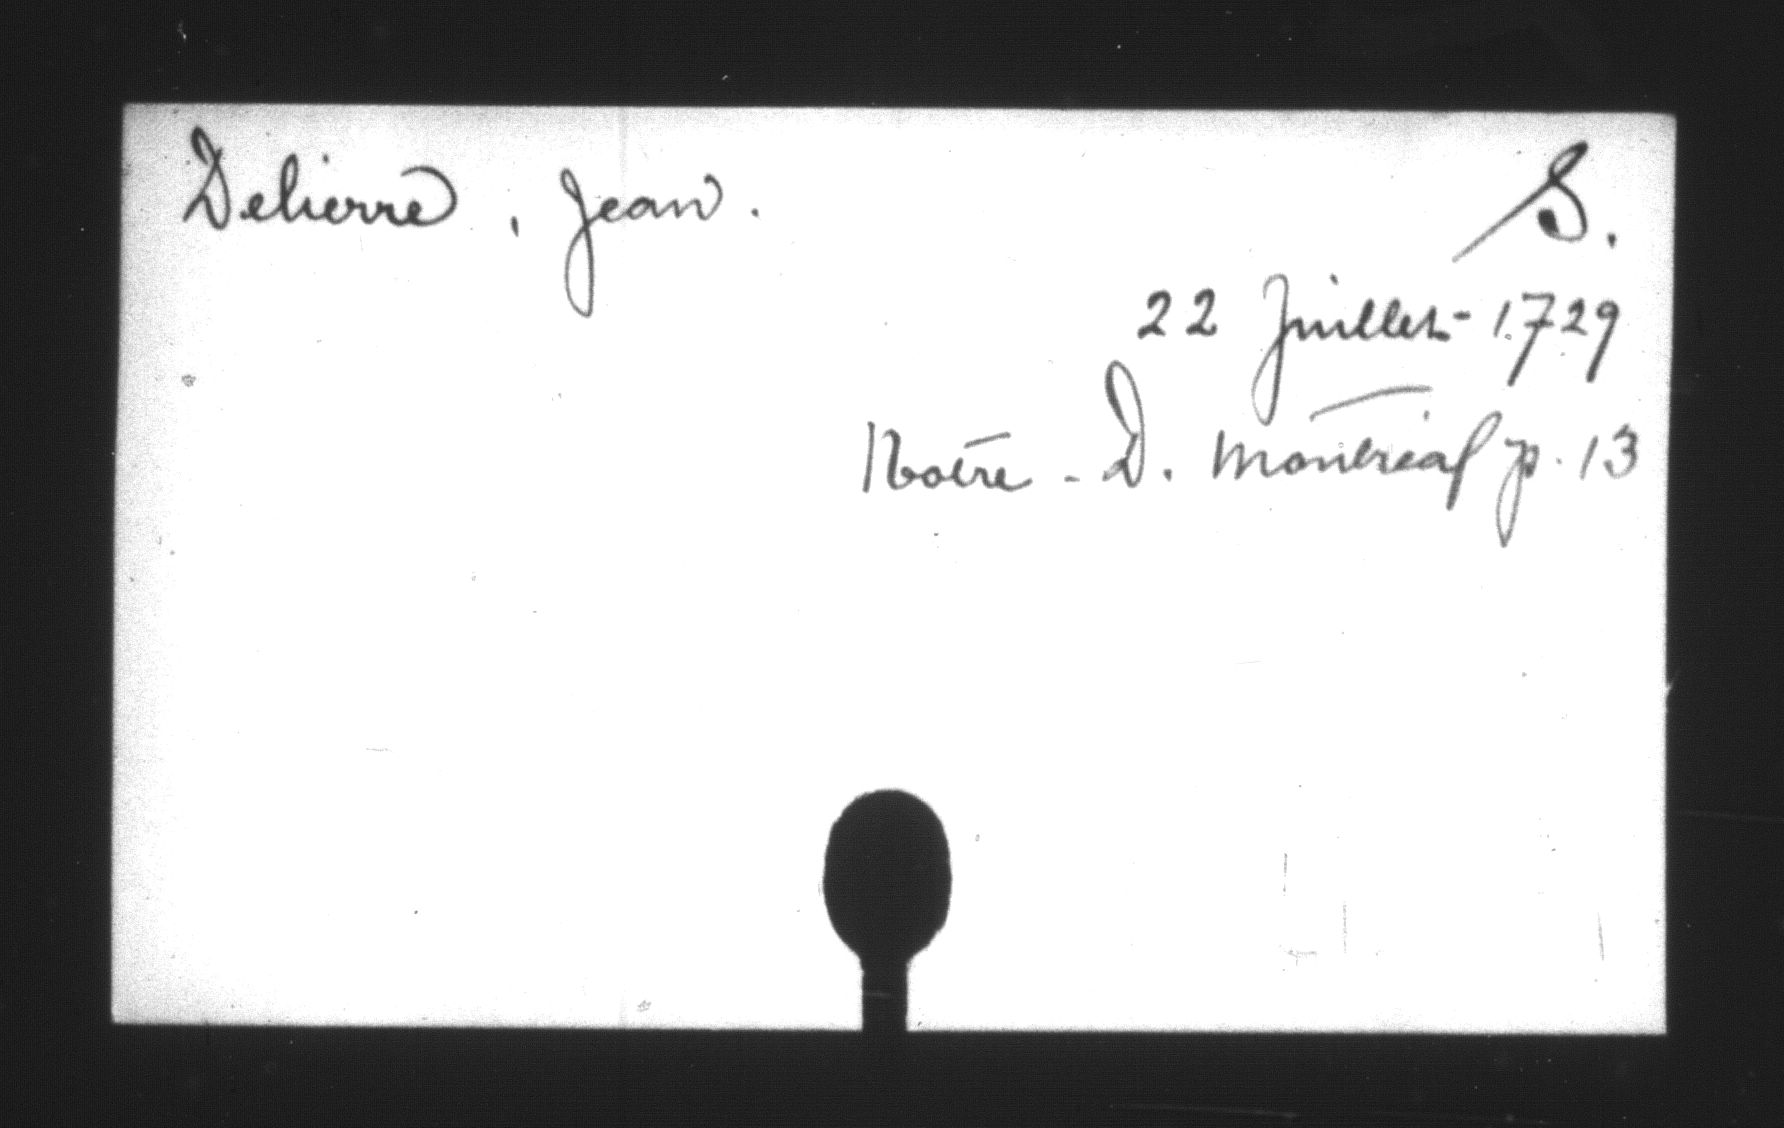 Delierre, Jean.
S.
22 Juillet - 1729
Notre - D. Montréal p. 13